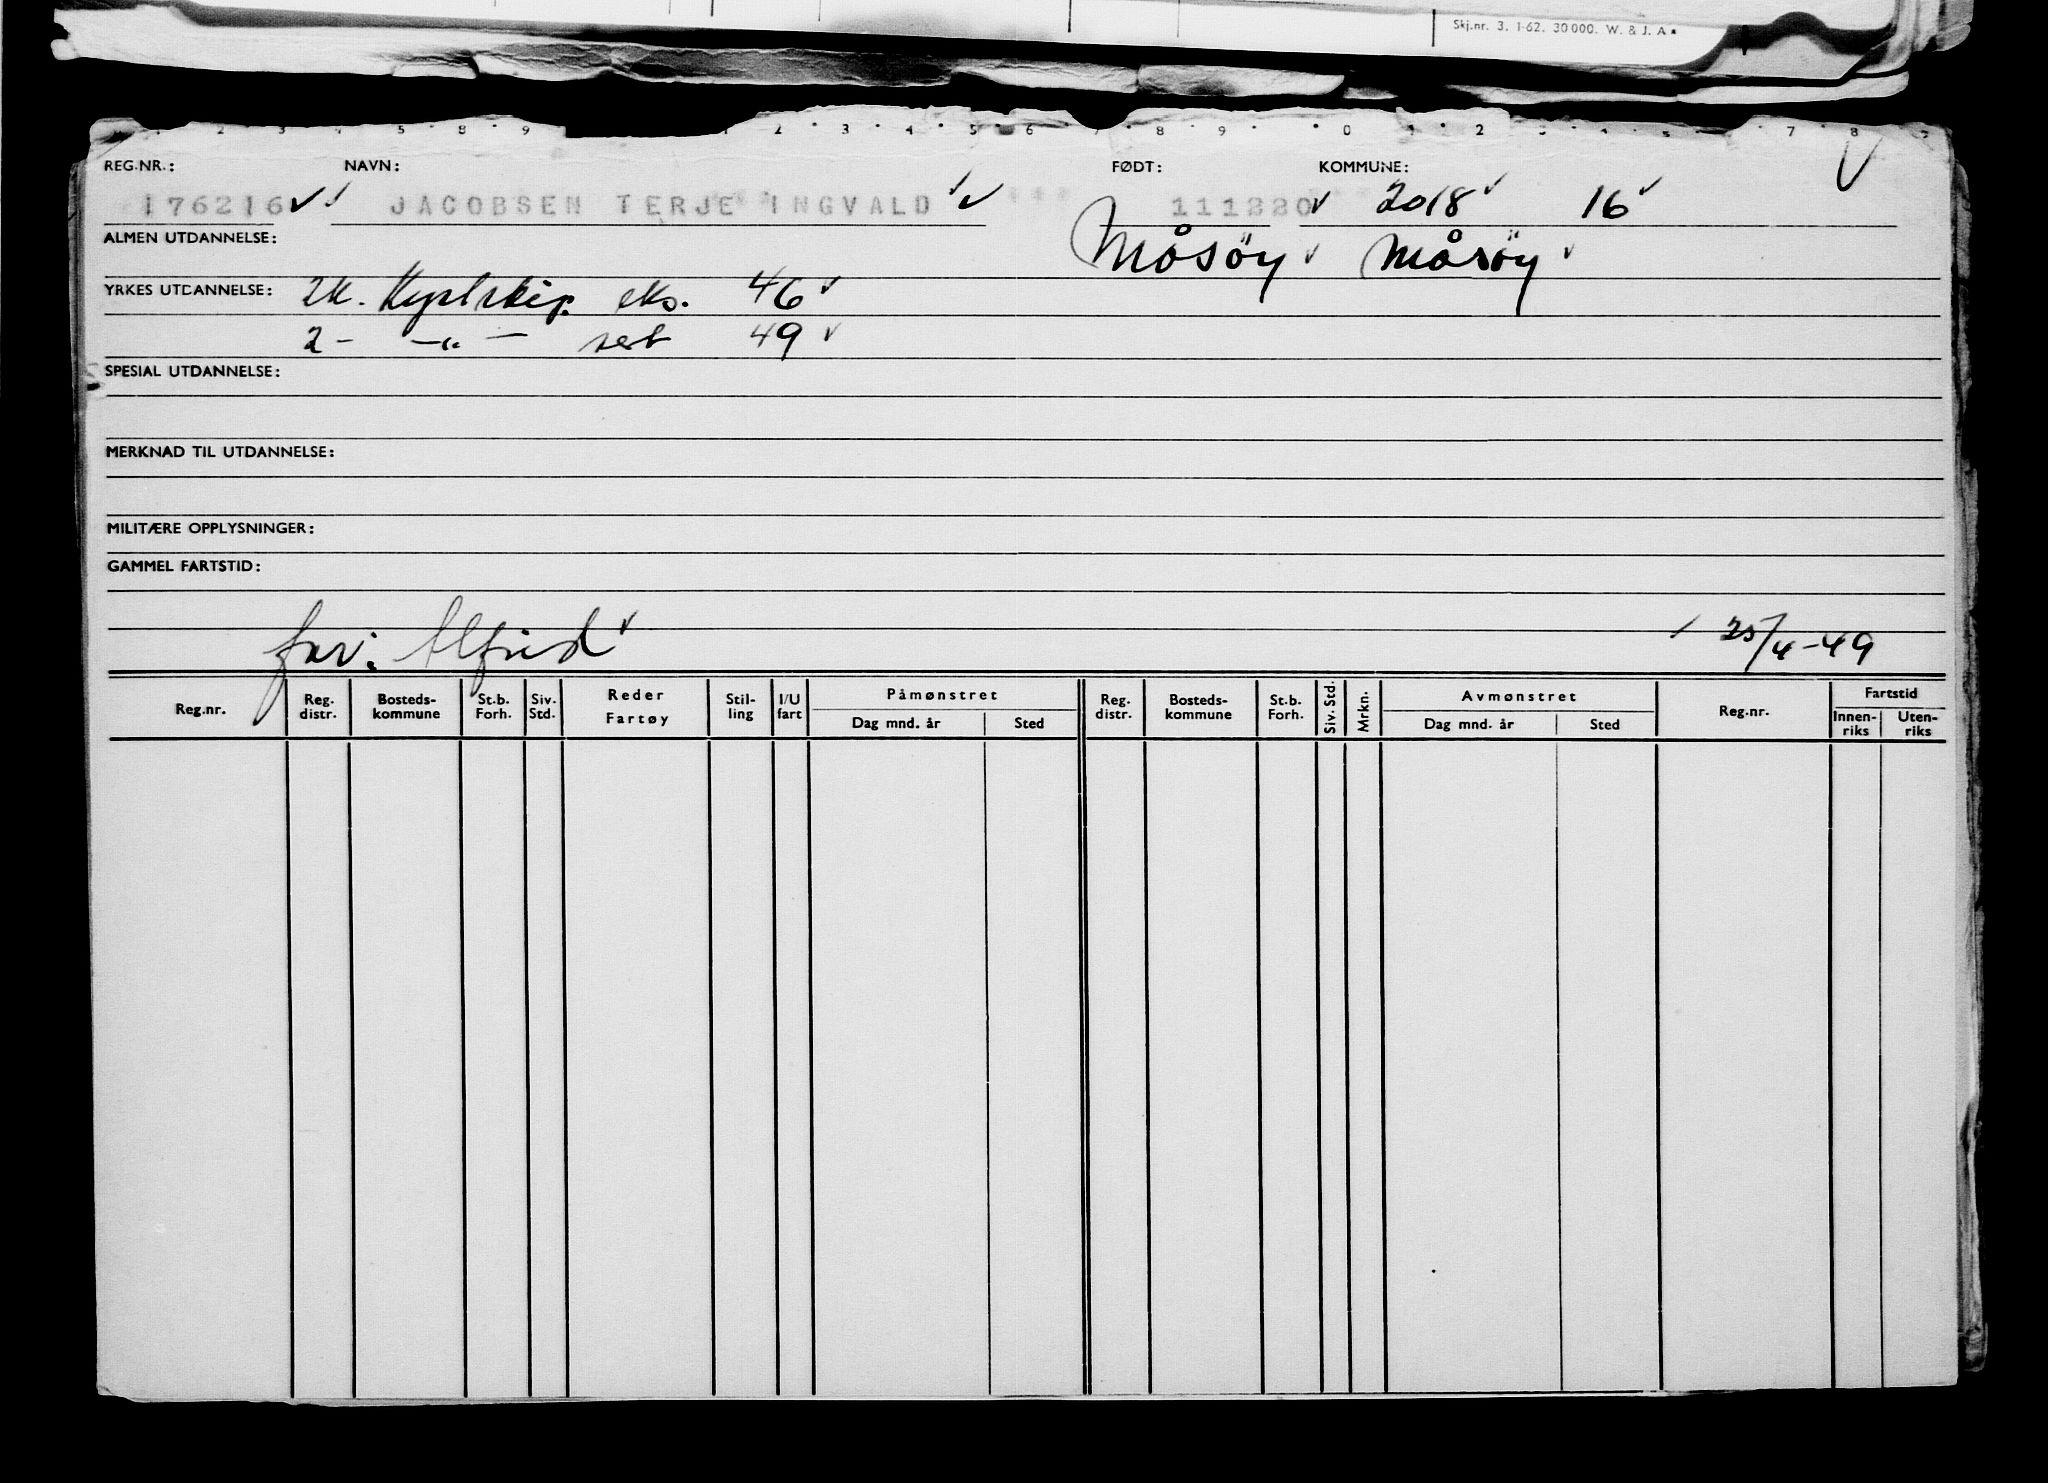 Skj.nr. 3. 1-62. 30 000. W. & J. A
REG.NR.: NAVN: FØDT: KOMMUNE:
176216 JACOBSEN TERJE INGVALD 111220 2018 16
ALMEN UTDANNELSE: Måsöy Måsöy
YRKES UTDANNELSE: 2kl. Kystskip. eks. 46
2 - -"- sert 49
SPESIAL UTDANNELSE:
MERKNAD TIL UTDANNELSE:
MILITÆRE OPPLYSNINGER:
GAMMEL FARTSTID:
far: Alfred 25/4-49
Reg.nr. Reg. distr. Bosteds-kommune St.b. Forh. Siv. Std. Reder Fartøy Stil-ling I/U fart Påmønstret Dag mnd. år Sted Reg. distr. Bosteds-kommune St.b. Forh. Siv. Std. Mrkn. Avmønstret Dag mnd. år Sted Reg.nr. Fartstid Innen-riks Uten-riks